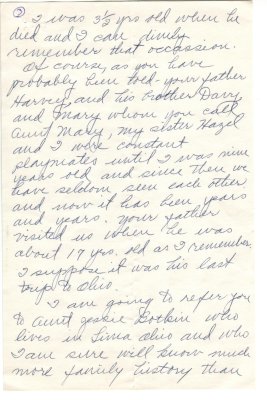 ②
I was 3½ yrs old when he
died and I can dimly
remember that occassion.
Of course, as you have
probably been told - your father
Harvey, and his brother Davy,
and Mary whom you call
Aunt Mary, my sister Hazel
and I were constant
playmates until I was nine
years old and since then we
have seldom seen each other
and now it has been years
and years. Your father
visited us when he was
about 17 yrs. old as I remember.
I suppose it was his last
trip to Ohio.
I am going to refer you
to Aunt Jessie Botkin who
lives in Lima Ohio and who
I am sure will know much
more family history than